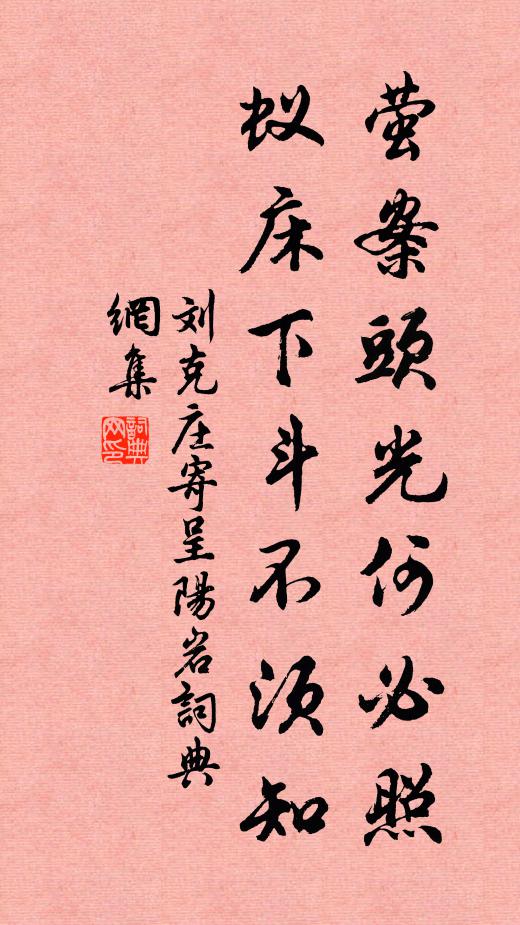 萤案頭光何必照
蚁床下斗不须知
刘克庄寄呈陽岩詞典
網集
詞典
网印